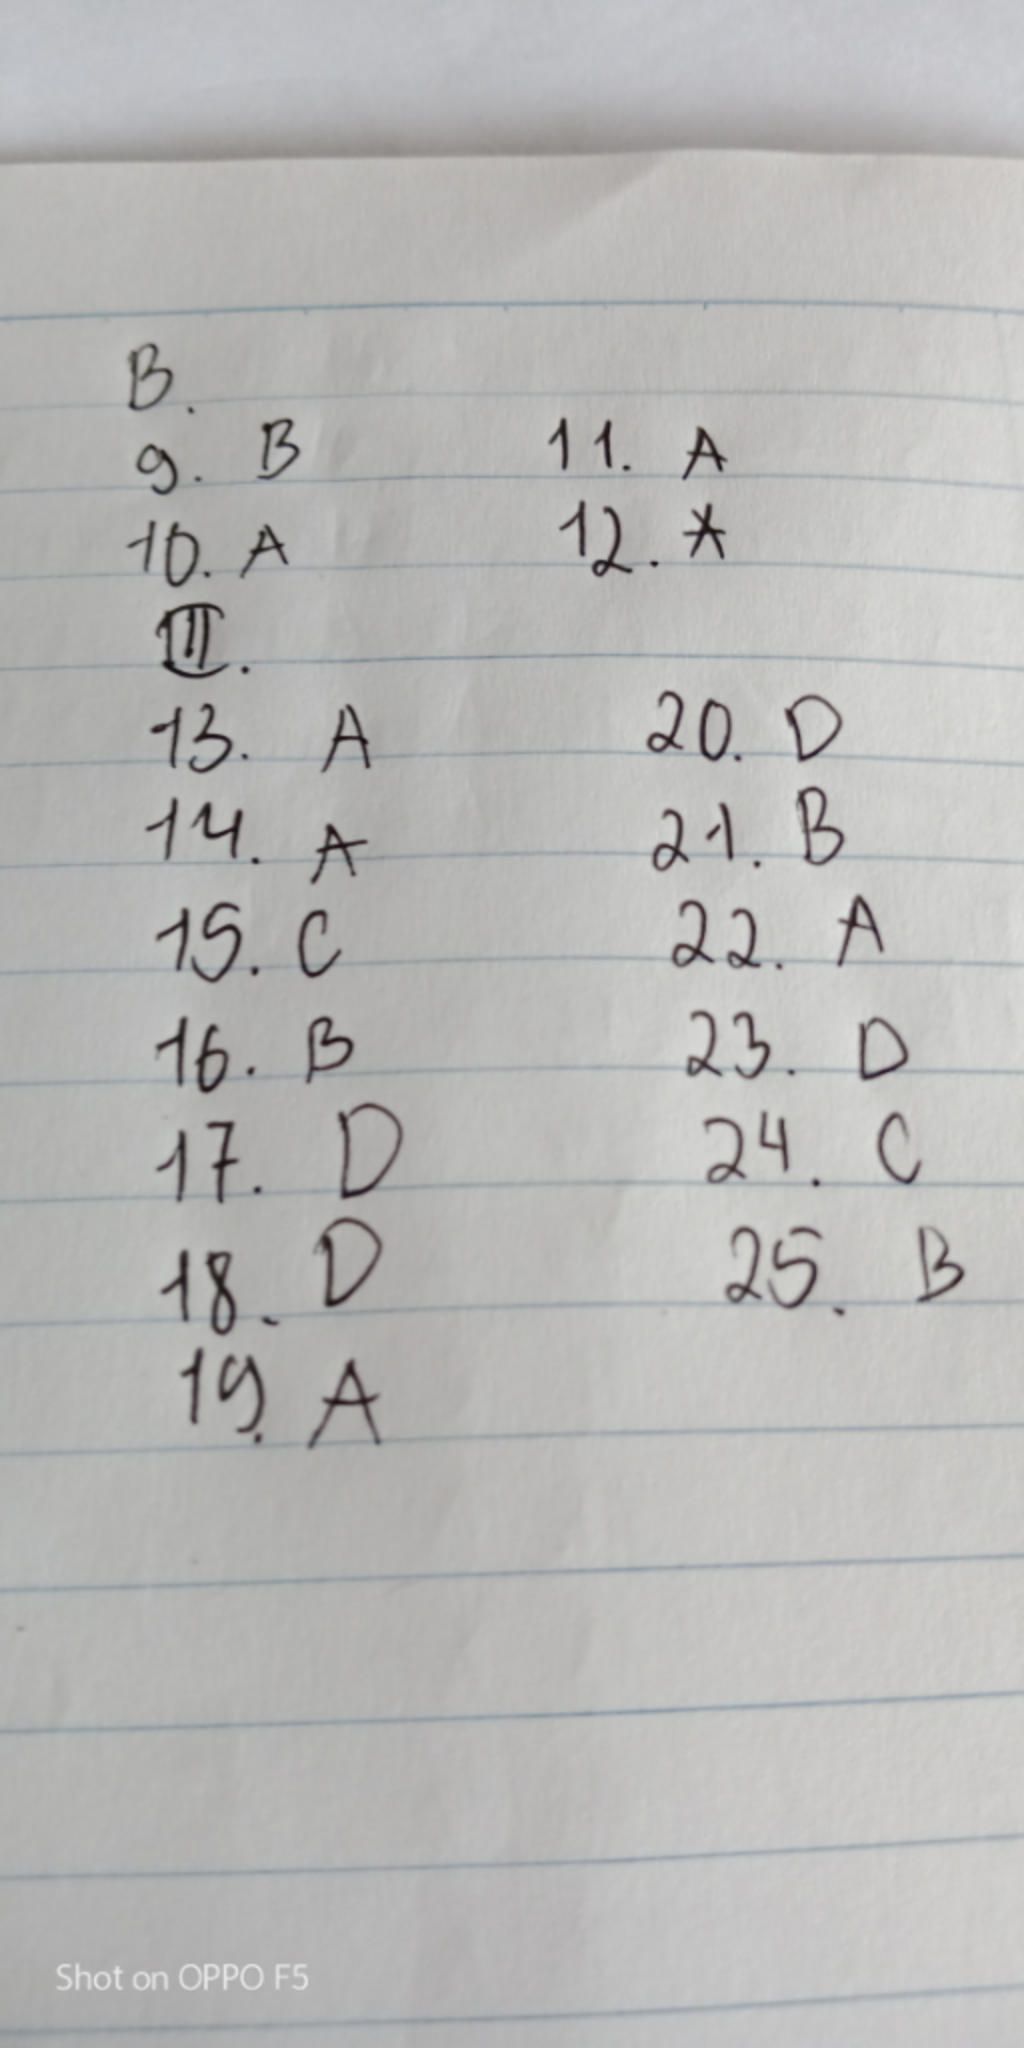 B.
9. B 11. A
10. A 12. A
III.
13. A 20. D
14. A 21. B
15. C 22. A
16. B 23. D
17. D 24. C
18. D 25. B
19. A
Shot on OPPO F5